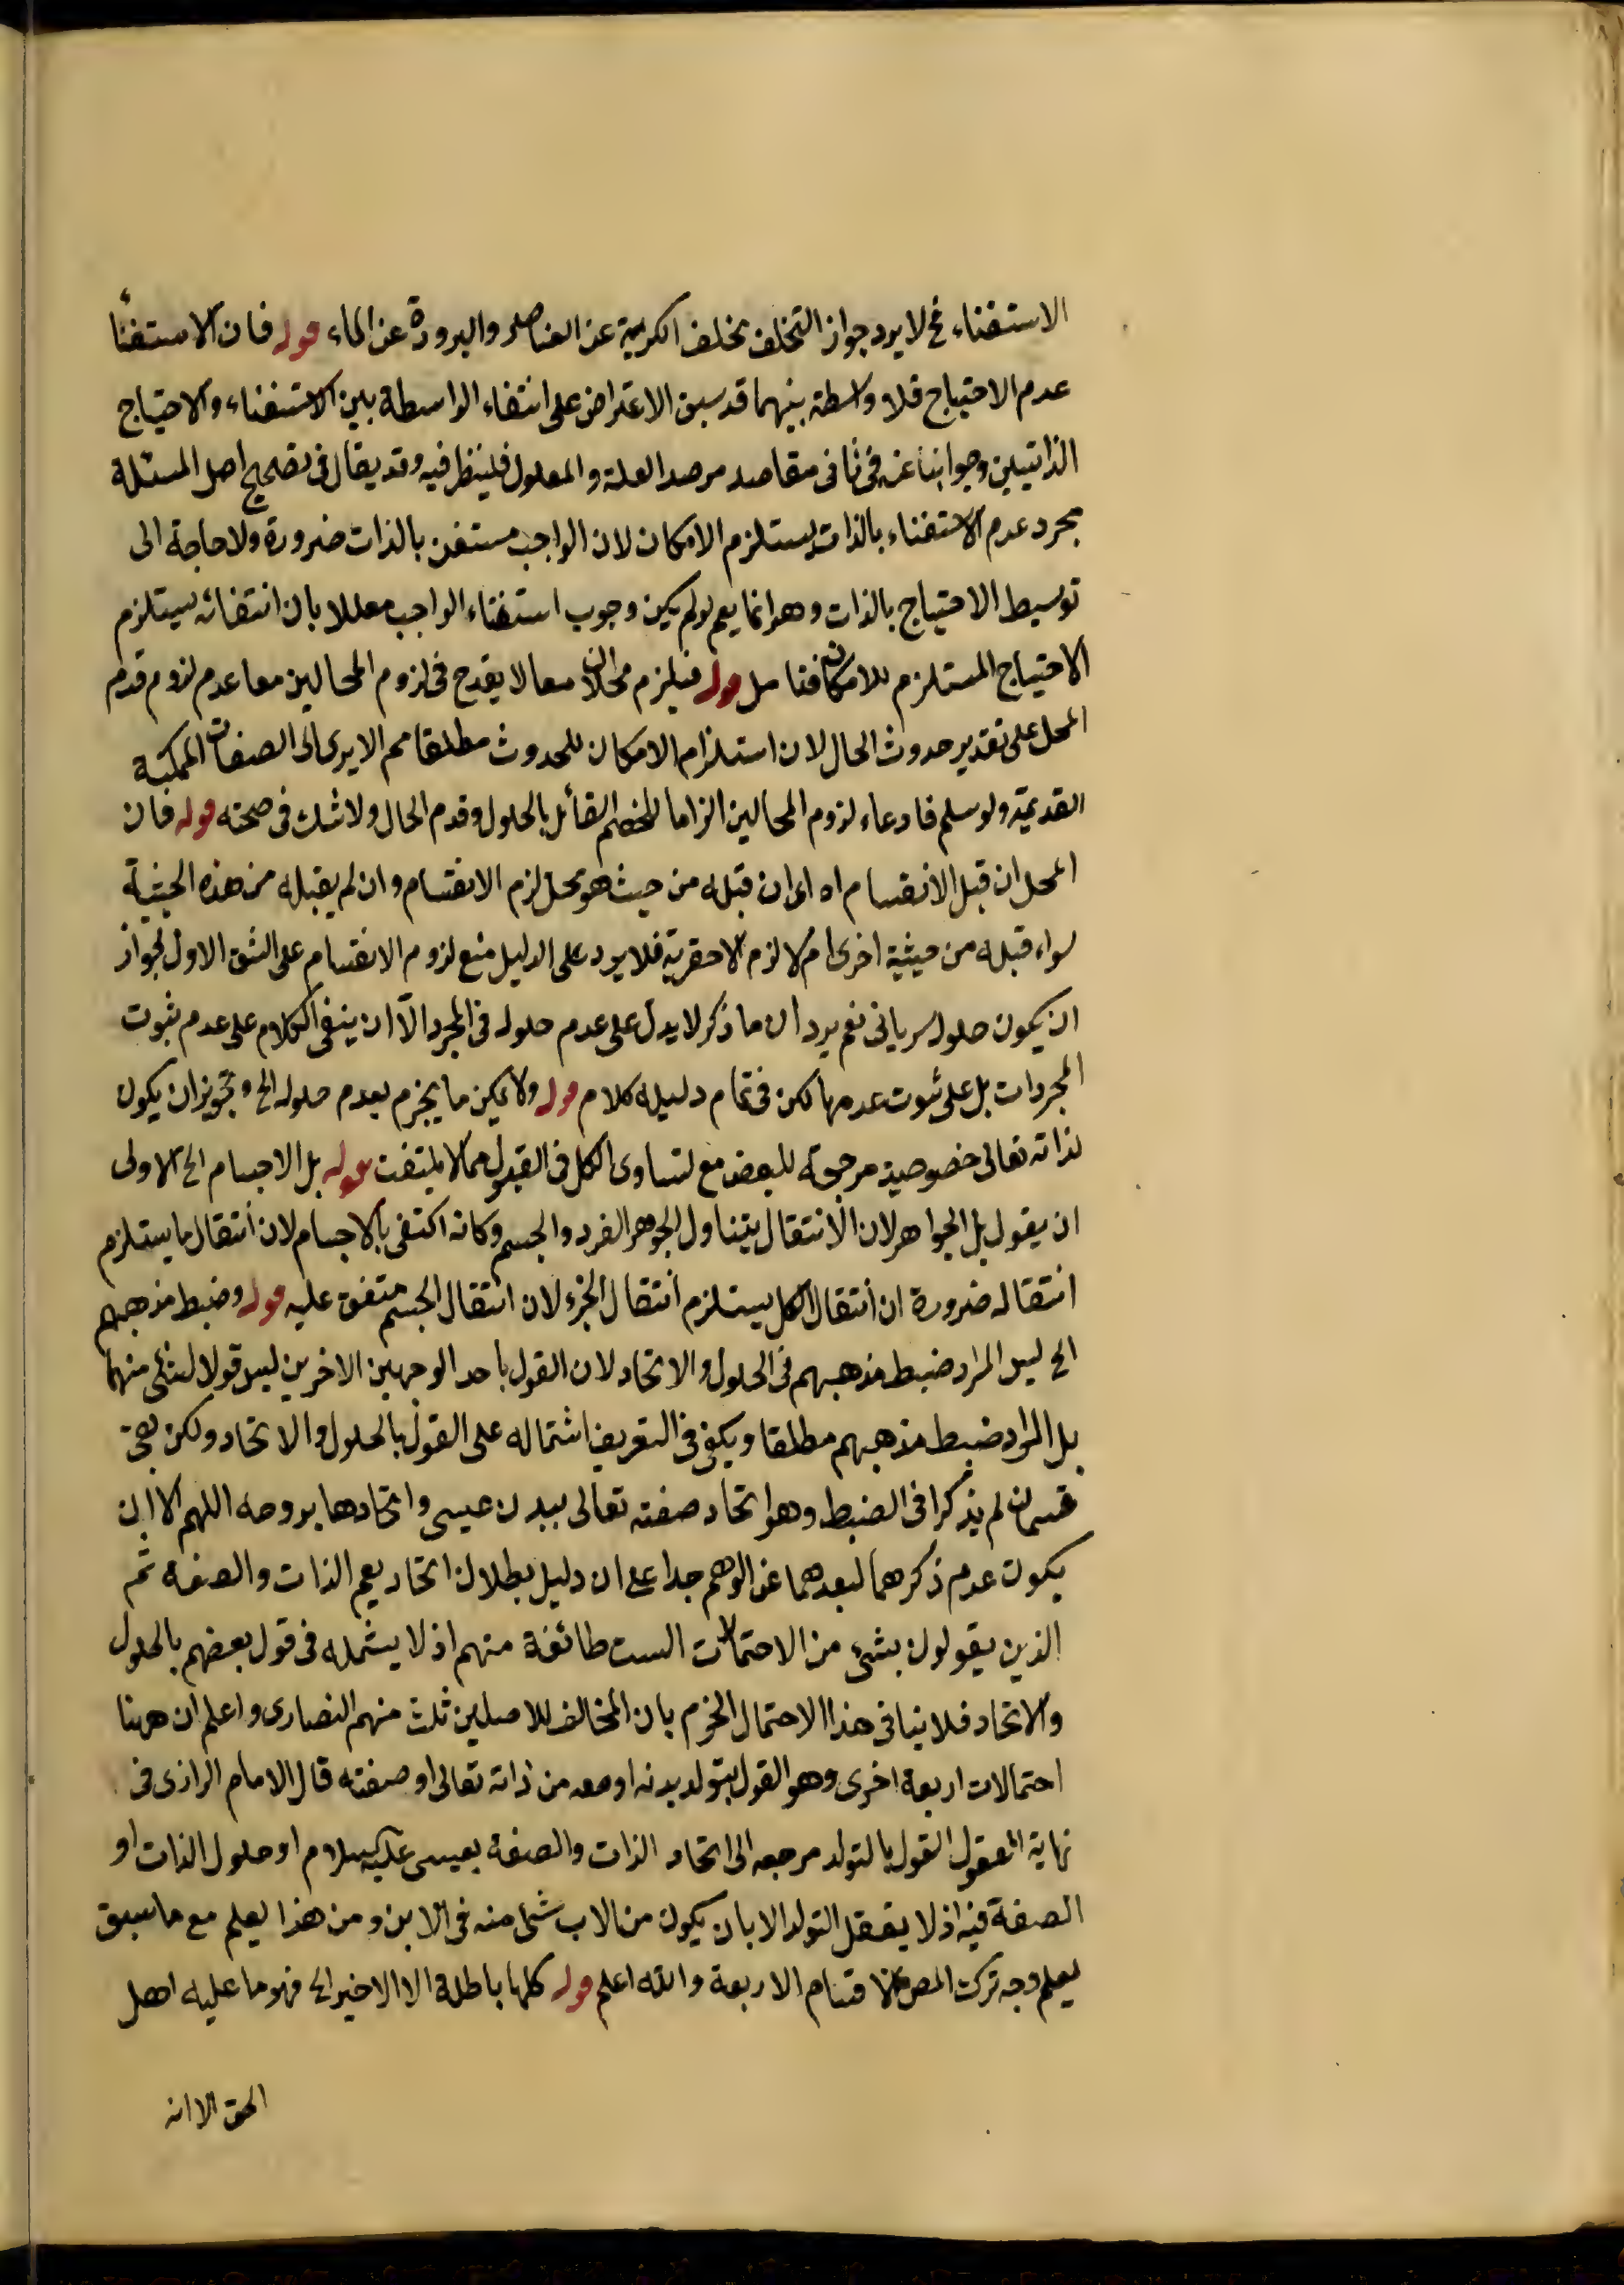 الاستغناء فح لا يرد جواز التخلف تخلف الكرية عن العناصر والبرودة عن الماء قوله فان الاستغناء
عدم الاحتياج فلا واسطة بينهما قد سبق الاعتراض على انتفاء الواسطة بين الاستغناء والاحتياج
الذاتيين وجوابنا عنه في ثاني مقاصد مرصد العلة والمعلول فلينظر فيه وقد يقال في تصحيح اصل المسئلة
مجرد عدم الاستغناء بالذات يستلزم الامكان لان الواجب مستغن بالذات ضرورة ولا حاجة الى
توسيط الاحتياج بالذات وهو انما يعم لو لم يكن وجوب استغناء الواجب معللا بان انتفائه يستلزم
الاحتياج المستلزم للامكان فتامل قوله فيلزم محالان معا لا يقدح في لزوم المحالين معا عدم لزوم قدم
المحل على تقدير حدوث الحال لان استلزام الامكان للحدوث مطلقا مم الا يرى الى الصفات الممكنة
القديمة ولو سلم فادعاء لزوم المحالين الزاما للخصم القائل بالحلول وقدم الحال ولا شك في صحته قوله فان
المحل ان قبل الانقسام اه اى ان قبله من حيث هو محل لزم الانقسام وان لم يقبله من هذه الحيثية
سواء قبله من حيثية اخرى ام لا لزم الاحقرية فلا يرد على الدليل منع لزوم الانقسام على الشق الاول لجواز
ان يكون حلول سرياني نعم يرد ان ما ذكر لا يدل على عدم حلوله في المجرد الا ان يبنى الكلام على عدم ثبوت
المجردات بل على ثبوت عدمها لكن في تمام دليله كلام قوله ولا يمكن ما يجزم بعدم حلوله الخ وتجويز ان يكون
لذاته تعالى خصوصية مرجحة للبعض مع تساوى الكل في القبول مما لا يلتفت قوله بل الاجسام الخ الاولى
ان يقول بل الجواهر لان الانتقال يتناول الجوهر الفرد والجسم وكانه اكتفى بالاجسام لان انتقال ما يستلزم
انتقاله ضرورة ان انتقال الكل يستلزم انتقال الجزء لان انتقال الجسم متفق عليه قوله وضبط مذهبهم
الخ ليس المراد ضبط مذهبهم في الحلول والاتحاد لان القول باحد الوجهين الاخرين ليس قولا لشئ منهما
بل المراد ضبط مذهبهم مطلقا ويكفي في التعريف اشتماله على القول بالحلول والاتحاد ولكن بقى
قسمان لم يذكرا في الضبط وهو اتحاد صفته تعالى ببدن عيسى واتحادها بروحه اللهم الا ان
يكون عدم ذكرهما لبعدهما عن الوهم جدا على ان دليل بطلان اتحاد يعم الذات والصفة ثم
الذين يقولون بشئ من الاحتمالات الست طائفة منهم اذ لا يشمله في قول بعضهم بالحلول
والاتحاد فلا ينافى هذا الاحتمال الجزم بان المخالف للاصلين ثلث منهم النصارى واعلم ان ههنا
احتمالات اربعة اخرى وهو القول بتولد بدنه او من ذاته تعالى او صفته قال الامام الرازى في
نهاية العقول القول بالتولد مرجعه الى اتحاد الذات والصفة بعيسى عليه السلام او حلول الذات او
الصفة فيه اذ لا يعقل التولد الا بان يكون من الاب شئ منه في الابن ومن هذا يعلم مع ما سبق
يعلم وجه ترك المص الاقسام الاربعة والله اعلم قوله كلها باطلة الا الاخير الخ فهو ما عليه اهل
الحق الا انه